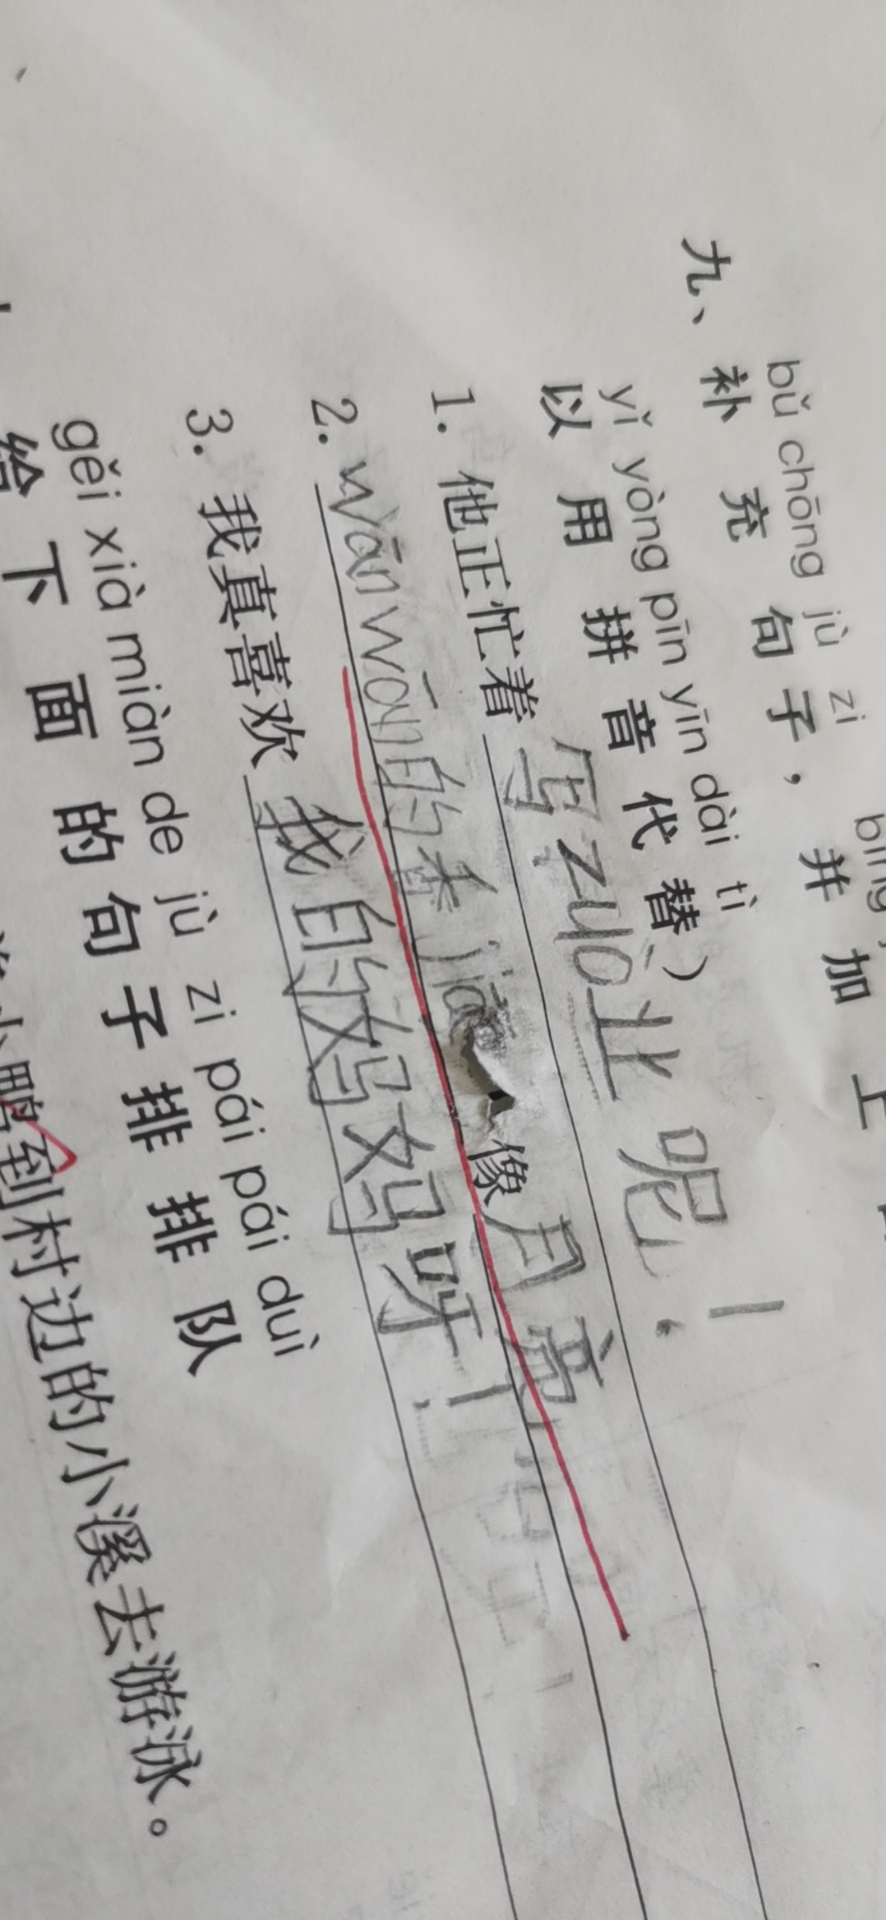 bǔ chōng jù zi bìng
九、补充句子，并加上
yǐ yòng pīn yīn dài tì
以用拼音代替）
1. 他正忙着写zuò业呢！
2. wān wān的香jiāo像月亮
3. 我真喜欢我的妈妈呀！
gěi xià miàn de jù zi pái pái duì
给下面的句子排排队
小鸭到村边的小溪去游泳。